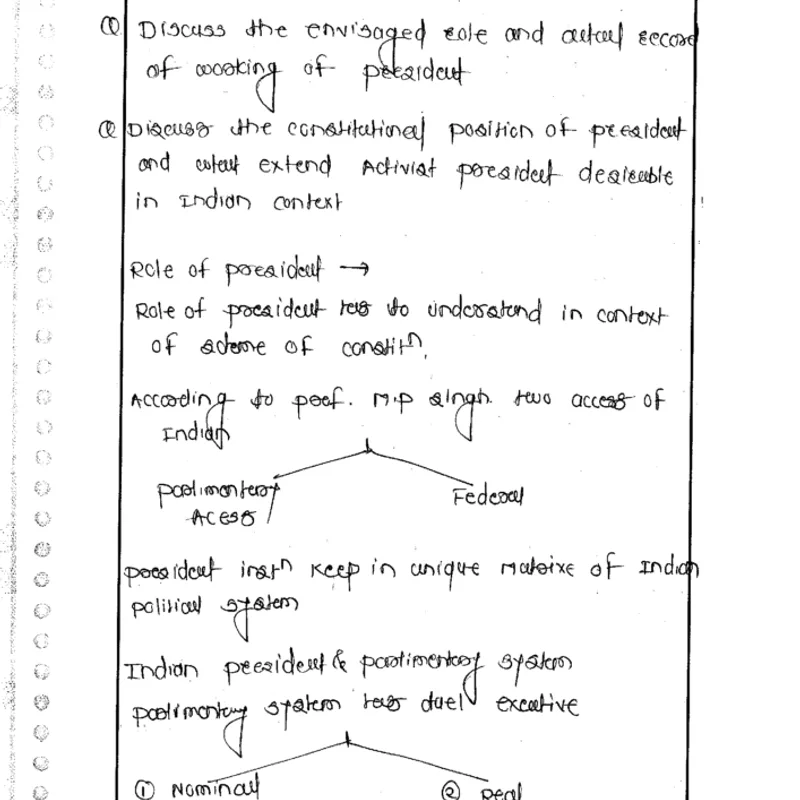 Q Discuss the envisaged role and actual record
of working of president
Q Discuss the constitutional position of president
and what extend Activist president desirable
in Indian context
Role of president →
Role of president has to understand in context
of scheme of constitn.
According to prof. M.P singh. two access of
Indian
parlimentary Federal
Acess
president instn keep in unique matrixe of Indian
political system
Indian president & parlimentary system
parlimentary system has duel executive
① Nominal ② Real